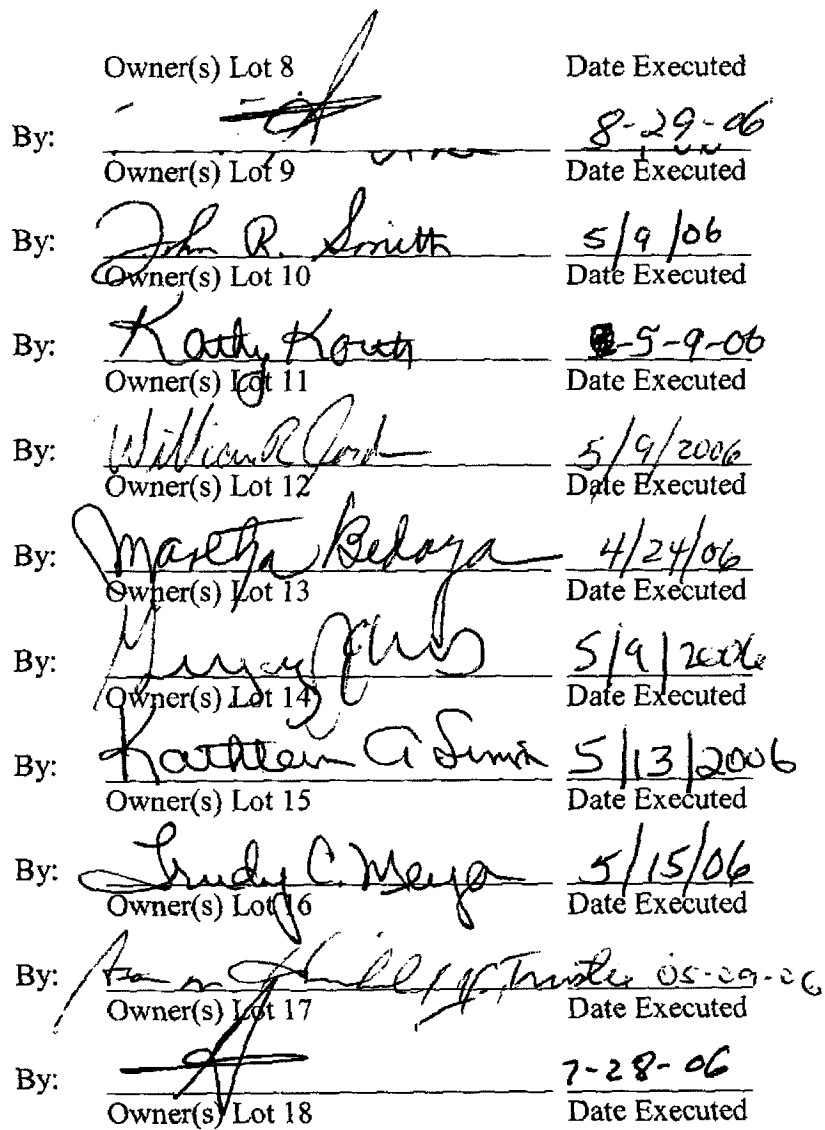 Owner(s) Lot 8 Date Executed
By: 8-29-06
Owner(s) Lot 9 Date Executed
By: John R. Smith 5/9/06
Owner(s) Lot 10 Date Executed
By: Kathy 5-9-06
Owner(s) Lot 11 Date Executed
By: William R 5/9/2006
Owner(s) Lot 12 Date Executed
By: Martha Bedoya 4/24/06
Owner(s) Lot 13 Date Executed
By: 5/9/2006
Owner(s) Lot 14 Date Executed
By: Kathleen A 5/13/2006
Owner(s) Lot 15 Date Executed
By: Trudy C. Meyer 5/15/06
Owner(s) Lot 16 Date Executed
By: Trustee 05-09-06
Owner(s) Lot 17 Date Executed
By: 7-28-06
Owner(s) Lot 18 Date Executed